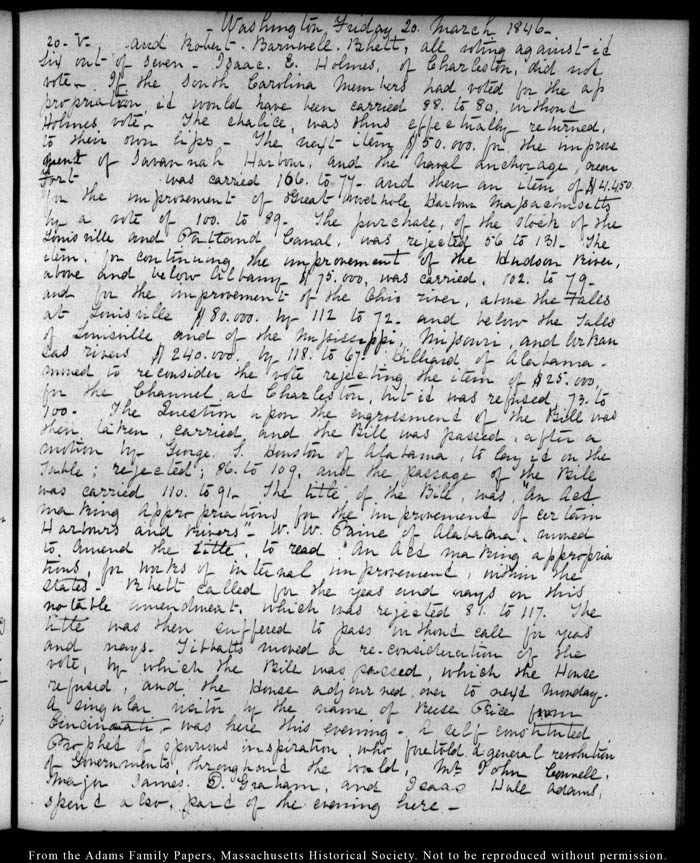 Washington Friday 20. March 1846-
20-V, and Robert. Barnwell. Rhett, all voting against it
Six out of seven - Isaac. E. Holmes, of Charleston, did not
vote - If the South Carolina members had voted for the ap
propriation it would have been carried 88. to 80, without
Holmes vote - The chalice, was thus effectually returned,
to their own lips - The next item $50.000. for the improve
ment of Savannah Harbour, and the naval anchorage, near
Fort was carried 166. to 77- and then an item of $4.450
for the improvement of Great Woodhole Harbour Massachusetts
by a vote of 100. to 89- The purchase, of the stock of the
Louisville and Portland, Canal, was rejected 56 to 131- The
item. for continuing the improvement of the Hudson River,
above and below Albany $75.000, was carried, 102. to 79-
and for the improvement of the Ohio river, above the Falls
at Louisville $80.000. by 112 to 72- and below the Falls
of Louisville and of the Mississippi, Missouri, and Arkan
sas rivers $240.000. by 118. to 67. Hilliard of Alabama-
moved to reconsider the vote rejecting the item of $25.000,
for the Channel at Charleston, but it was refused, 73. to
100- The Question upon the engrossment of the Bill was
then taken, carried and the Bill was passed, after a
motion by George. S. Houston of Alabama, to lay it on the
Table; rejected; 86. to 109, and the passage of the Bill
was carried 110. to 91- The title of the Bill, was, "An Act
making appropriations for the improvement of certain
Harbours and Rivers"- W. W. Payne of Alabama, moved
to amend the title, to read "An Act making appropria
tions, for works of internal improvement, within the
States- Rhett called for the yeas and nays on this
notable amendment, which was rejected 81. to 117. The
title was then suffered to pass without call for yeas
and nays. Tibbatts moved a re-consideration of the
vote, by which the Bill was passed, which the House
refused, and the House adjourned over to next Monday-
A singular visitor by the name of Reese Price from
Cincinnati, was here this evening- A self constituted
Prophet of spurious inspiration, who foretold a general revolution
of Governments, throughout the world, Mr John Connell,
Major James. D. Graham, and Isaac Hull Adams,
spent also, part of the evening here -
From the Adams Family Papers, Massachusetts Historical Society. Not to be reproduced without permission.